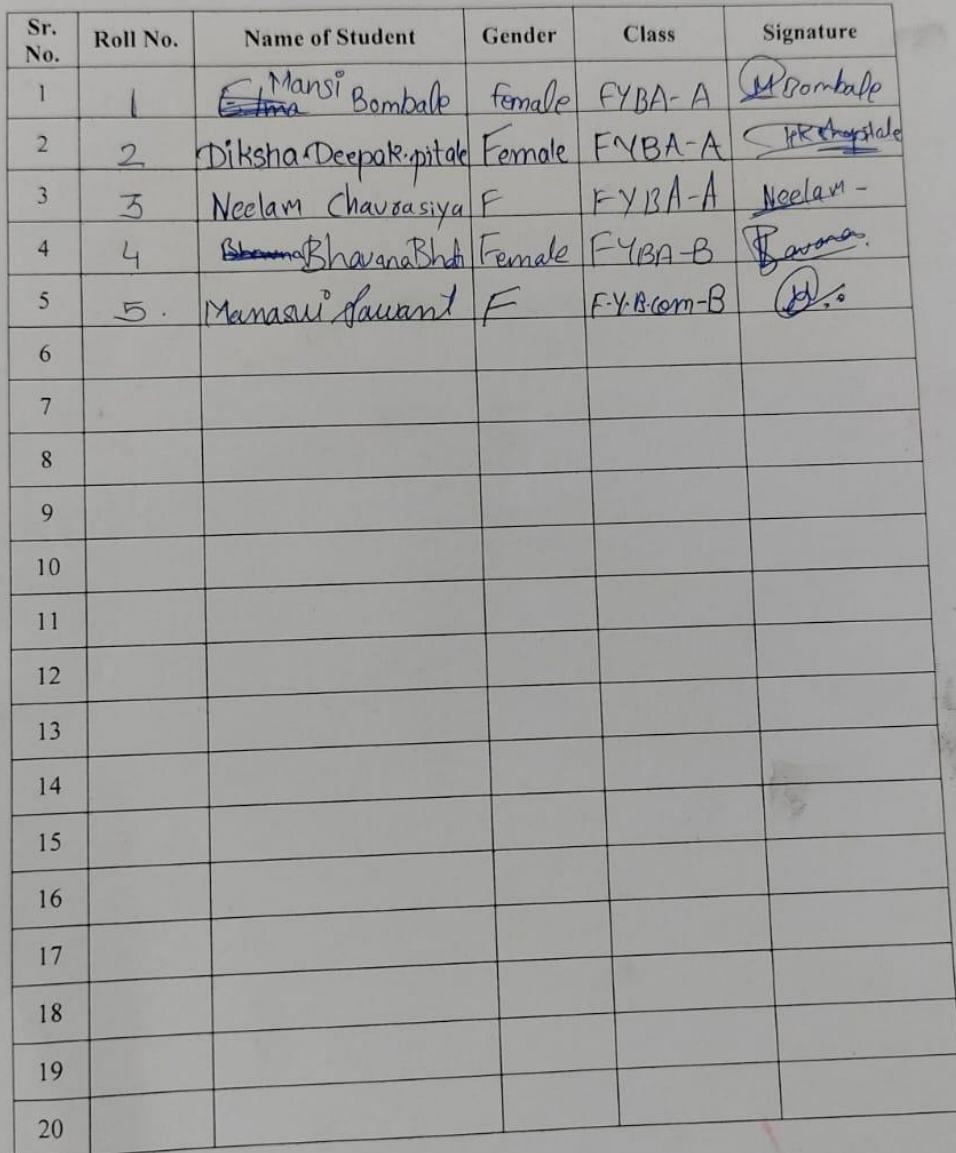 Sr. No. Roll No. Name of Student Gender Class Signature
1 1 Mansi Bombale female FYBA-A MBombale
2 2 Diksha Deepak pitale Female FYBA-A
3 3 Neelam Chaurasiya F FYBA-A Neelam -
4 4 Bhavana Female FYBA-B
5 5. Manasvi Sawant F F.Y.B.com-B
6
7
8
9
10
11
12
13
14
15
16
17
18
19
20